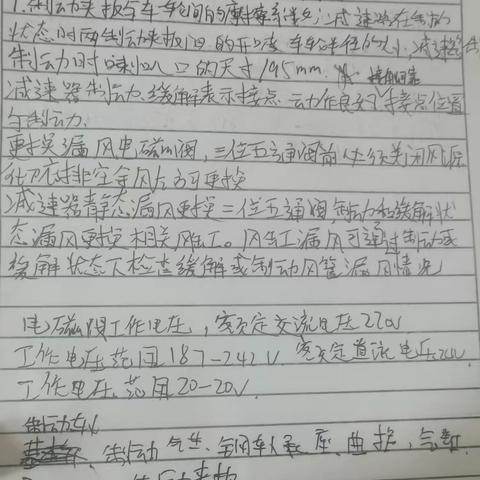 1.制动夹板与车轮间的摩擦系数；减速器在制动
状态时两制动夹板间的开口 车轮半径的大小，减速器在
制动时 喇叭口的尺寸195mm.
减速器制动、缓解表示接点 动作良好 接点位置
与制动.
更换漏风电磁阀，三位五通阀前必须关闭风源
排空余风后方可更换
减速器静态漏风更换三位五通阀，制动和缓解状
态漏风更换相关风缸。风缸漏风可通过制动或
缓解状态下检查缓解或制动风管漏风情况
电磁阀工作电压，额定交流电压220V
工作电压范围187-242V. 额定直流电压24V
工作电压.范围20-20V.
制动车
制动 气缸、钢轨承座、曲拐，气缸